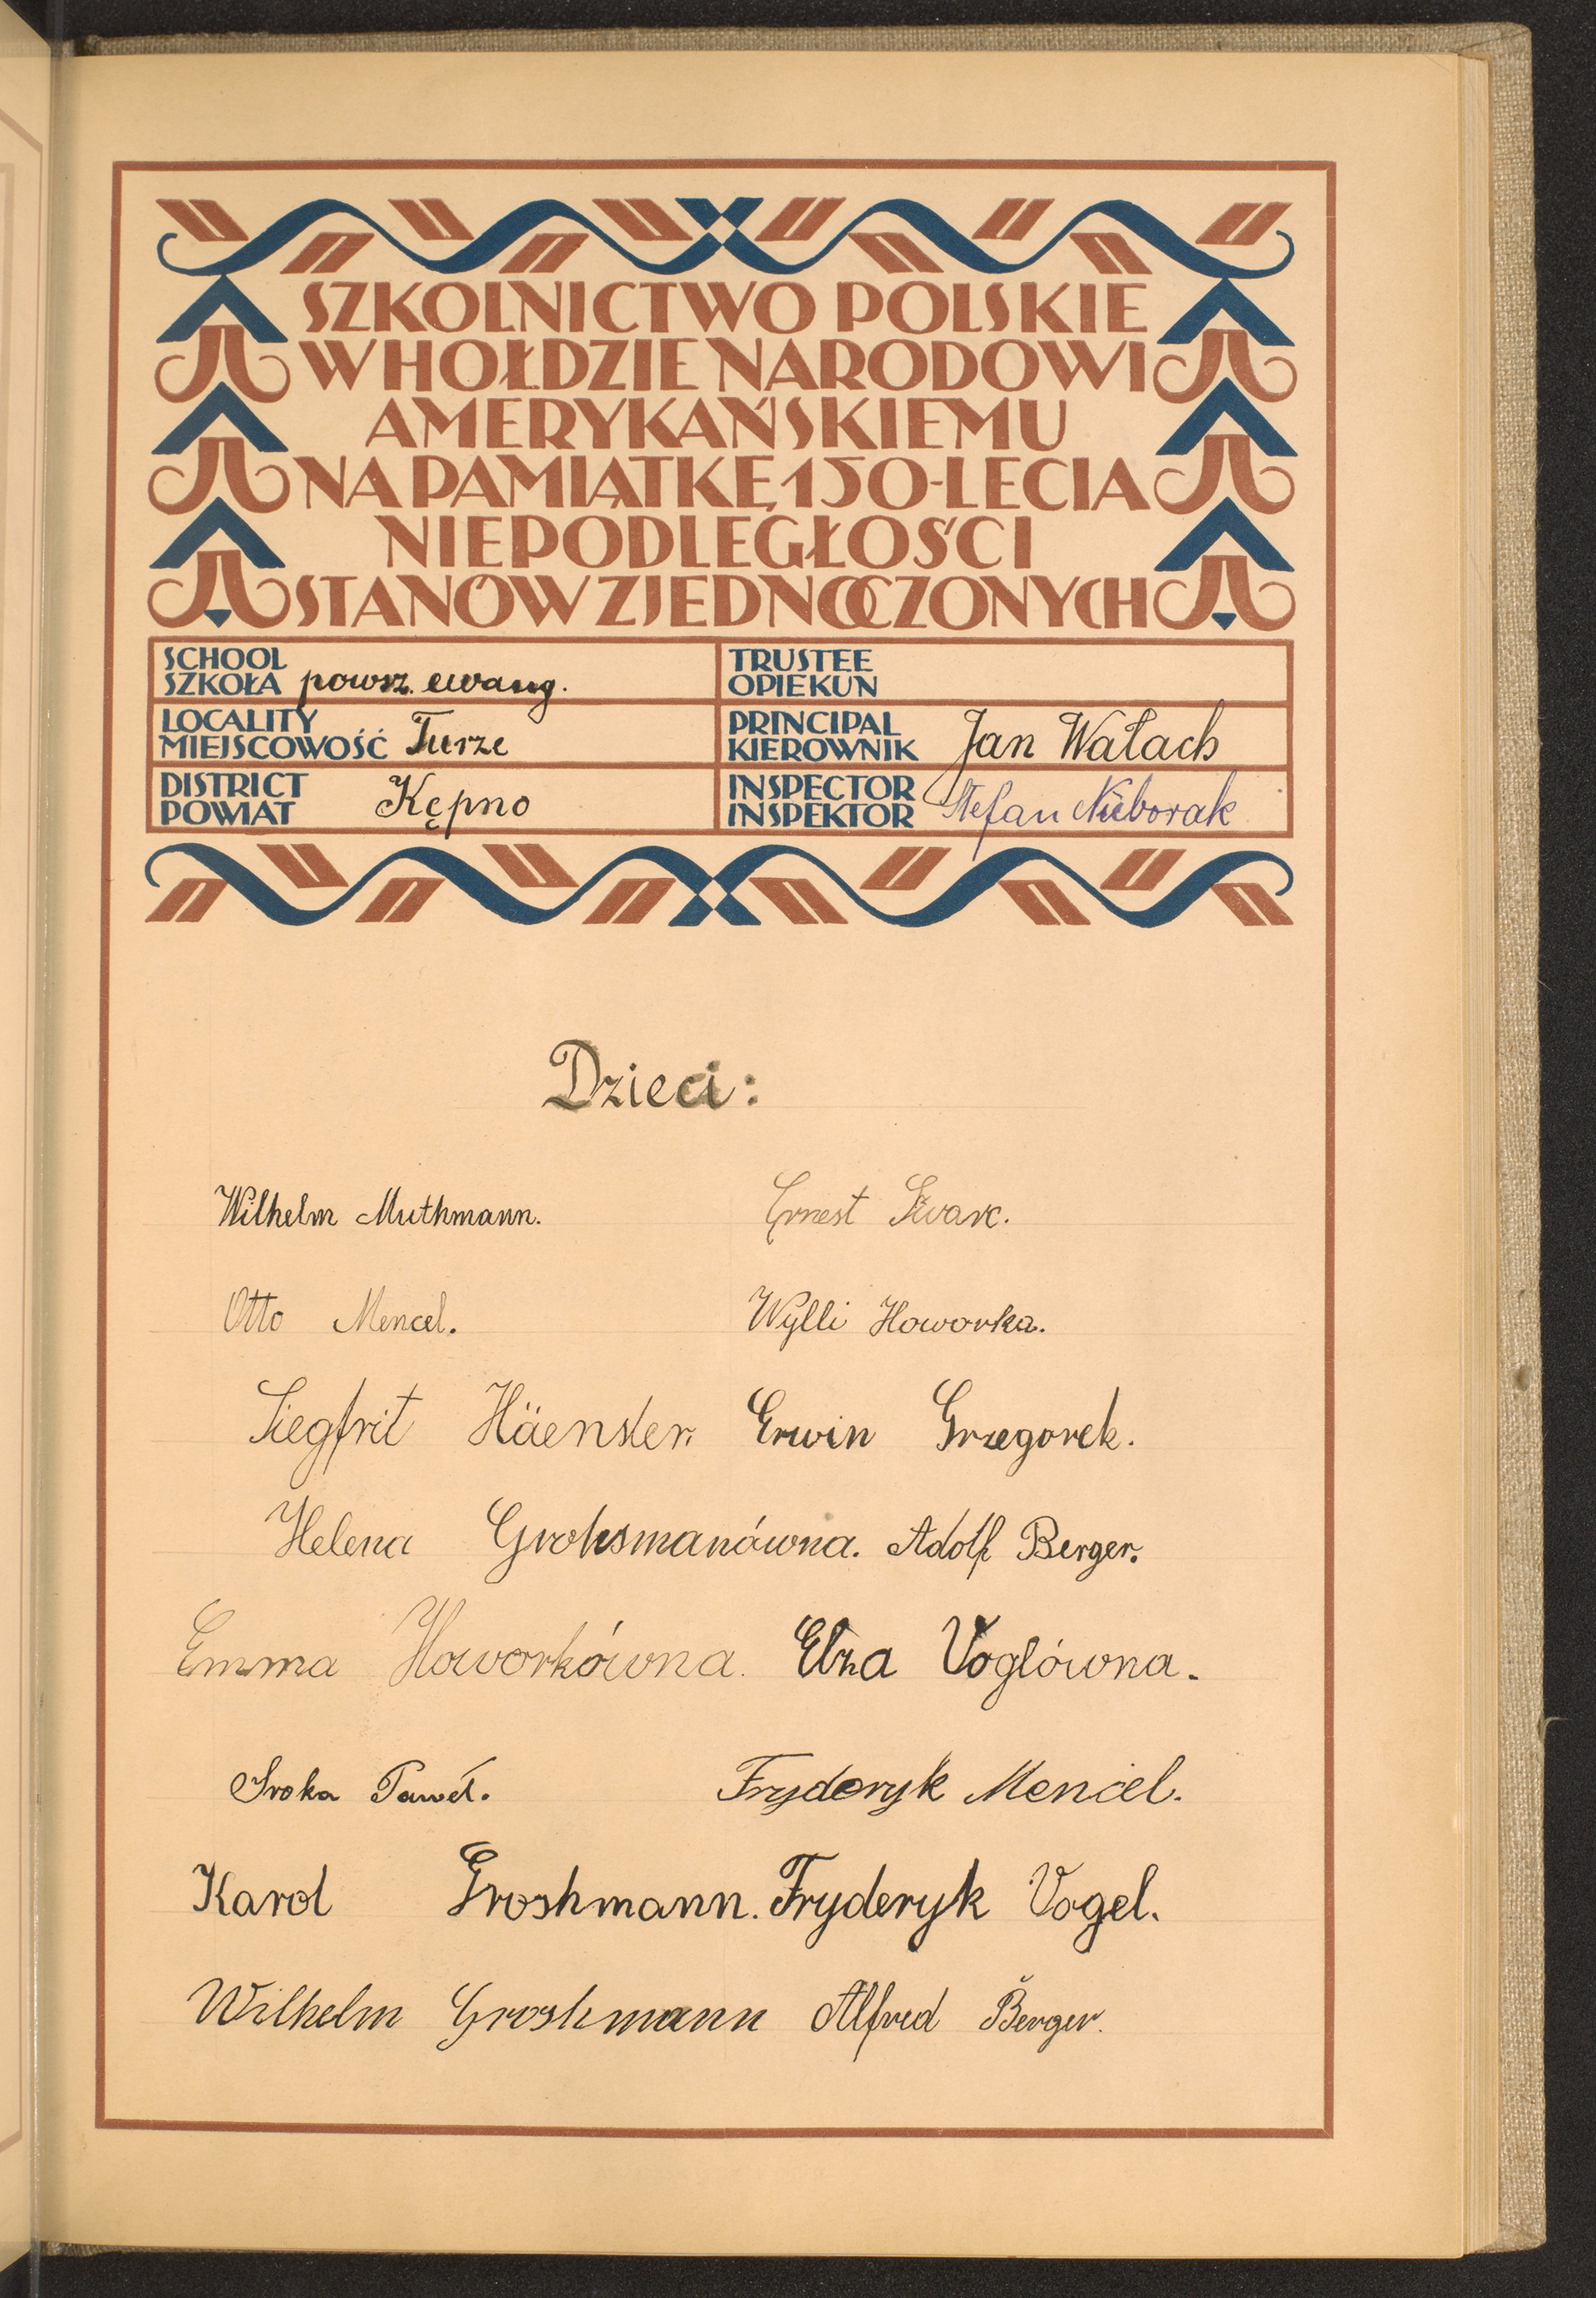 SZKOLNICTWO POLSKIE
W HOŁDZIE NARODOWI
AMERYKAŃSKIEMU
NA PAMIĄTKĘ 150-LECIA
NIEPODLEGŁOŚCI
STANÓW ZJEDNOCZONYCH
SCHOOL
SZKOŁA powsz. ewang.
TRUSTEE
OPIEKUN
LOCALITY
MIEJSCOWOŚĆ Turze
PRINCIPAL
KIEROWNIK Jan Wałach
DISTRICT
POWIAT Kępno
INSPECTOR
INSPEKTOR Stefan Niborak
Dzieci:
Wilhelm Muthmann. Ernest Szwarc.
Otto Mencel. Wylli Howorka.
Siegfrit Häensler. Erwin Grzegorek.
Helena Grohsmanówna. Adolf Berger.
Emma Howorkówna. Elza Voglówna.
Sroka Paweł. Fryderyk Mencel.
Karol Groshmann. Fryderyk Vogel.
Wilhelm Groshmann Alfred Berger.